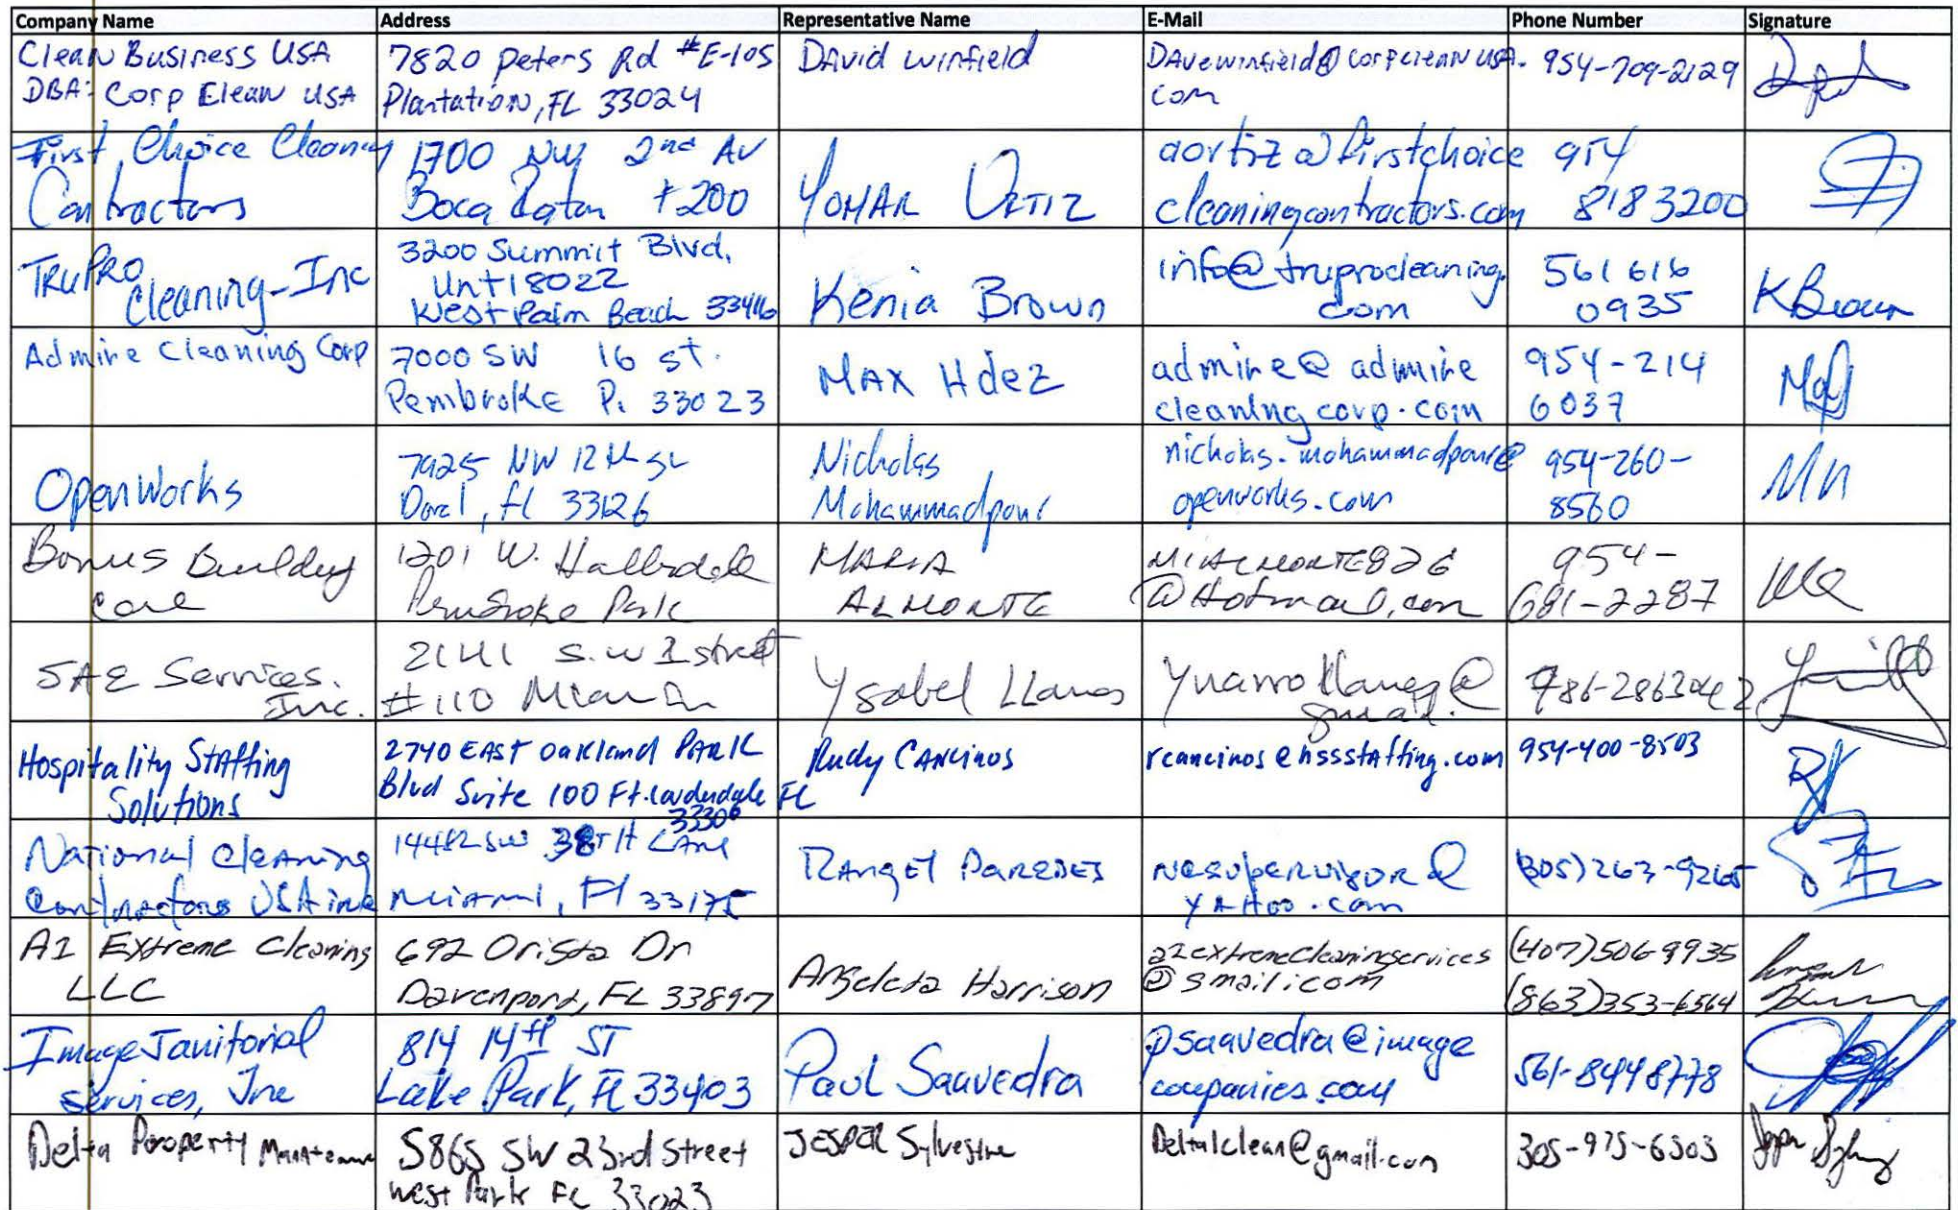 Company Name Address Representative Name E-Mail Phone Number Signature
Clean Business USA
DBA: Corp Clean USA
7820 Peters Rd #E-105
Plantation, FL 33024
David Winfield
Davewinfield@corpcleanusa.
com
954-709-2129
First Choice Cleaning
Contractors
1700 NW 2nd Av
Boca Raton #200
Yomar Ortiz
aortiz@firstchoice
cleaningcontractors.com
954
8183200
TruPro
Cleaning-Inc
3200 Summit Blvd,
Unt 18022
West Palm Beach 33416
Kenia Brown
info@truprocleaning.
com
561 616
0935
K Brown
Admire Cleaning Corp
7000 SW 16 st.
Pembroke P. 33023
Max Hdez
admire@admire
cleaningcorp.com
954-214
6037
OpenWorks
7925 NW 12th St
Doral, fl 33126
Nicholas
Mohammadpour
nicholas.mohammadpour@
openworks.com
954-260-
8560
Bonus Building
Care
1201 W. Hallandale
Pembroke Park
Maria
Almonte
@Hotmail.com
954-
681-2287
SAE Services.
Inc.
2141 S.W 1 street
#110 Miami
Ysabel Llanes
gmail.
Hospitality Staffing
Solutions
2740 East Oakland Park
Blvd Suite 100 Ft. Lauderdale FL
33306
Rudy Cancinos
rcancinos@hssstaffing.com
954-400-8503
National Cleaning
Contractors USA inc
14482 SW 38TH Lane
Miami, Fl 33175
Rangel Paredes
ncsupervisor@
yahoo.com
(305)263-9265
A1 Extreme Cleaning
LLC
692 Orista Dr
Davenport, FL 33897
Angeleta Harrison
a1extremecleaningservices
@gmail.com
(407)506-9935
(863)353-6364
Image Janitorial
services, Inc
814 14th ST
Lake Park, FL 33403
Paul Saavedra
psaavedra@image
companies.com
561-8448778
Delta Property
5865 SW 23rd Street
West Park FL 33023
Jesper Sylvestre
Delta1clean@gmail.com
305-975-6503